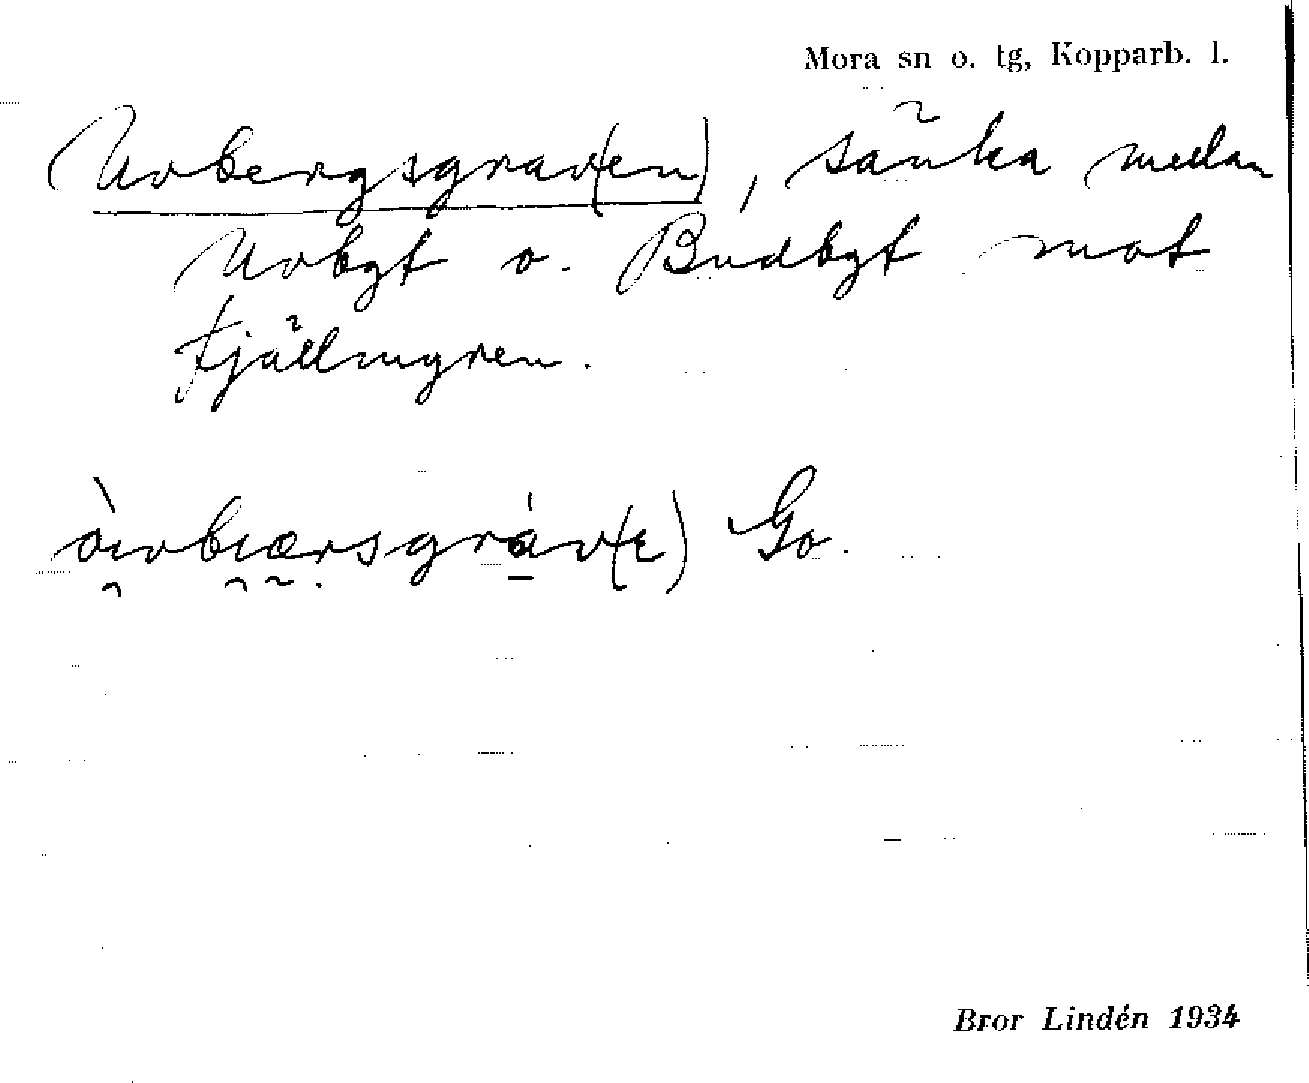 Mora sn o. tg, Kopparb. l.
Uvbergsgrav(en), sänka medan
Uvbgt o. Budbgt mot
Fjällmyren.
òɩvbɩærsgráv(ɛ) Go.
Bror Lindén 1934